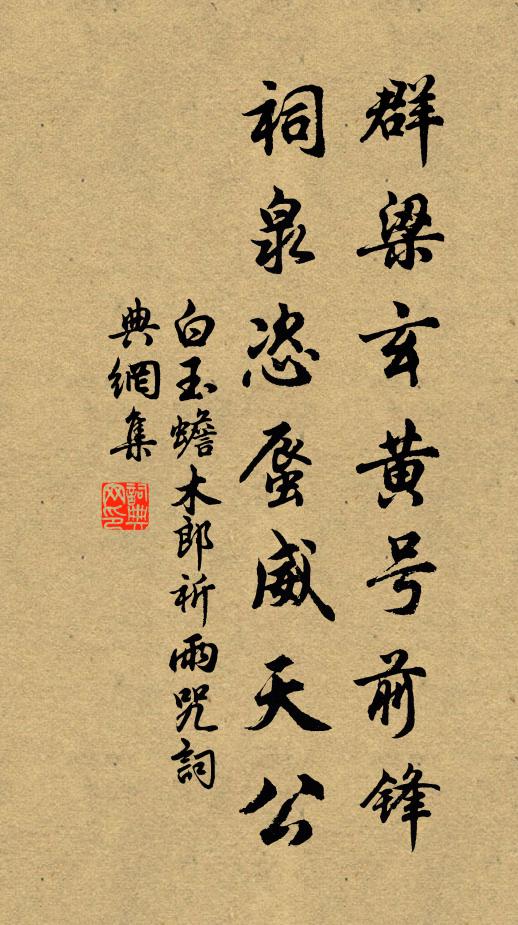 群梁玄黄号前锋
祠泉恣蜃威天公
白玉蟾木郎祈雨咒詞
典網集
詞典
网印